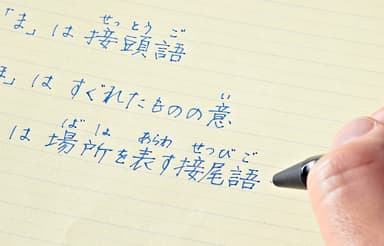 せっとうご
「ま」は 接頭語
い
」は すぐれたものの意
ばしょ あらわ せつびご
は 場所を表す接尾語